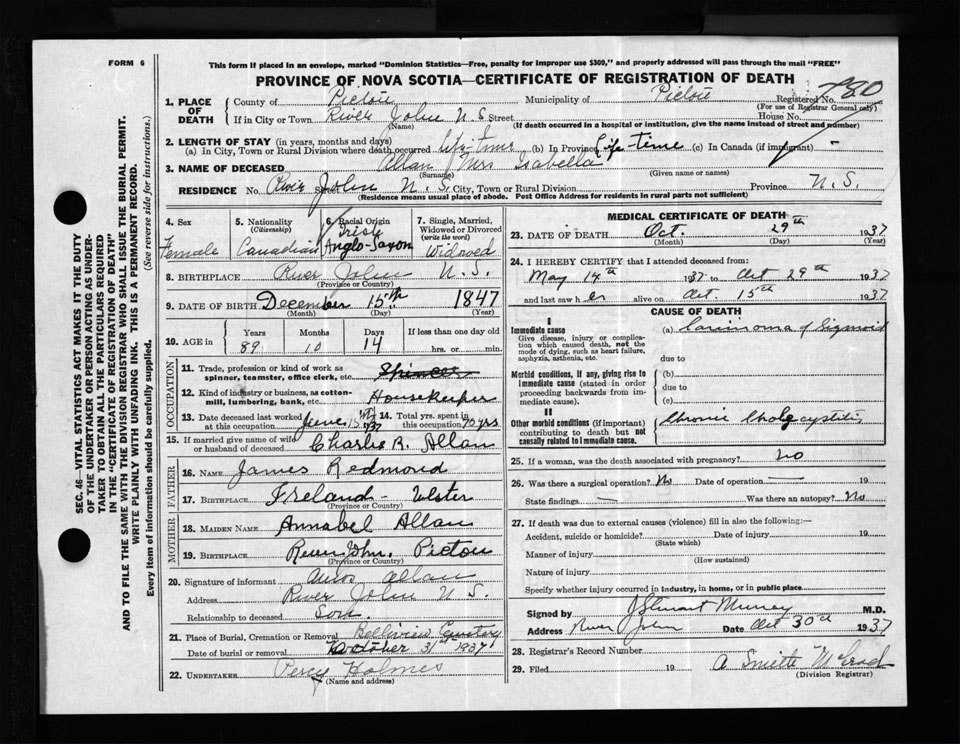 FORM 6
This form if placed in an envelope, marked "Dominion Statistics—Free, penalty for improper use $300," and properly addressed will pass through the mail "FREE"
PROVINCE OF NOVA SCOTIA—CERTIFICATE OF REGISTRATION OF DEATH
1. PLACE OF DEATH
County of Pictou Municipality of Pictou Registered No. 780
(For use of Registrar General only)
If in City or Town River John N.S. Street House No.
(Name) (If death occurred in a hospital or institution, give the name instead of street and number)
2. LENGTH OF STAY (in years, months and days)
(a) In City, Town or Rural Division where death occurred Life-time (b) In Province Life-time (c) In Canada (if immigrant) -
3. NAME OF DECEASED Allan Mrs Isabella
(Surname) (Given name or names)
RESIDENCE No. River Street John N.S. City, Town or Rural Division Province N.S.
(Residence means usual place of abode. Post Office Address for residents in rural parts not sufficient)
4. Sex Female
5. Nationality (Citizenship) Canadian
6. Racial Origin Irish Anglo-Saxon
7. Single, Married, Widowed or Divorced (write the word) Widowed
8. BIRTHPLACE River John N.S.
(Province or Country)
9. DATE OF BIRTH December 15th 1847
(Month) (Day) (Year)
10. AGE in Years 89 Months 10 Days 14 If less than one day old hrs. or min.
OCCUPATION
11. Trade, profession or kind of work as spinner, teamster, office clerk, etc. Spinner
12. Kind of industry or business, as cotton-mill, lumbering, bank, etc. Housekeeper
13. Date deceased last worked at this occupation June 15th 1937
14. Total yrs. spent in this occupation 70 yrs
15. If married give name of wife or husband of deceased Charlie R. Allan
FATHER
16. NAME James Redmond
17. BIRTHPLACE Ireland - Ulster
(Province or Country)
MOTHER
18. MAIDEN NAME Annabel Allan
19. BIRTHPLACE River John. Pictou
(Province or Country)
20. Signature of informant Allan
Address River John N.S.
Relationship to deceased Son
21. Place of Burial, Cremation or Removal Bellview Cemetery
Date of burial or removal October 31st 1937
22. UNDERTAKER Percy Holmes
(Name and address)
MEDICAL CERTIFICATE OF DEATH
23. DATE OF DEATH Oct. 29th 1937
(Month) (Day) (Year)
24. I HEREBY CERTIFY that I attended deceased from:
May 14th 1937 to Oct 29th 1937
and last saw her alive on Oct. 15th 1937
CAUSE OF DEATH
I
Immediate cause
Give disease, injury or complication which caused death, not the mode of dying, such as heart failure, asphyxia, asthenia, etc.
(a) Carcinoma of Sigmoid
due to
Morbid conditions, if any, giving rise to immediate cause (stated in order proceeding backwards from immediate cause).
(b)
due to
(c)
II
Other morbid conditions (if important) contributing to death but not causally related to immediate cause.
Chronic Cholecystitis
25. If a woman, was the death associated with pregnancy? no
26. Was there a surgical operation? No Date of operation — 19
State findings — Was there an autopsy? No
27. If death was due to external causes (violence) fill in also the following:—
Accident, suicide or homicide? Date of injury 19
(State which)
Manner of injury
(How sustained)
Nature of injury
Specify whether injury occurred in industry, in home, or in public place
Signed by J Stewart Murray M.D.
Address River John Date Oct 30th 1937
28. Registrar's Record Number
29. Filed 19
(Division Registrar)
SEC. 46—VITAL STATISTICS ACT MAKES IT THE DUTY
OF THE UNDERTAKER OR PERSON ACTING AS UNDER-
TAKER TO OBTAIN ALL THE PARTICULARS REQUIRED
IN THE "CERTIFICATE OF REGISTRATION OF DEATH"
AND TO FILE THE SAME WITH THE DIVISION REGISTRAR WHO SHALL ISSUE THE BURIAL PERMIT.
WRITE PLAINLY WITH UNFADING INK. THIS IS A PERMANENT RECORD.
Every item of information should be carefully supplied. (See reverse side for instructions.)